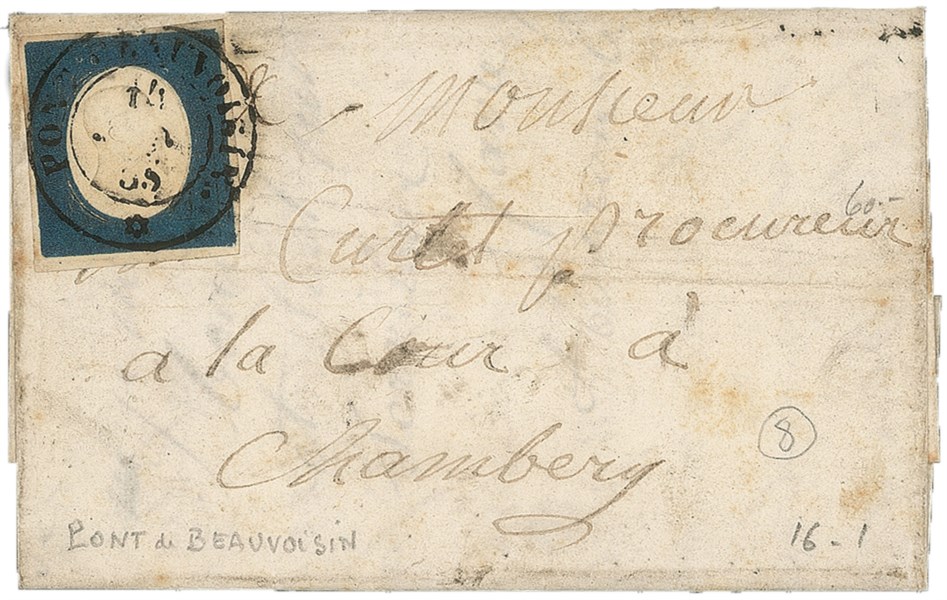 PONT BEAUVOISIN
14
55
A Monsieur
Curtet procureur
60
a la Cour à
Chambery
8
PONT de BEAUVOISIN
16-1